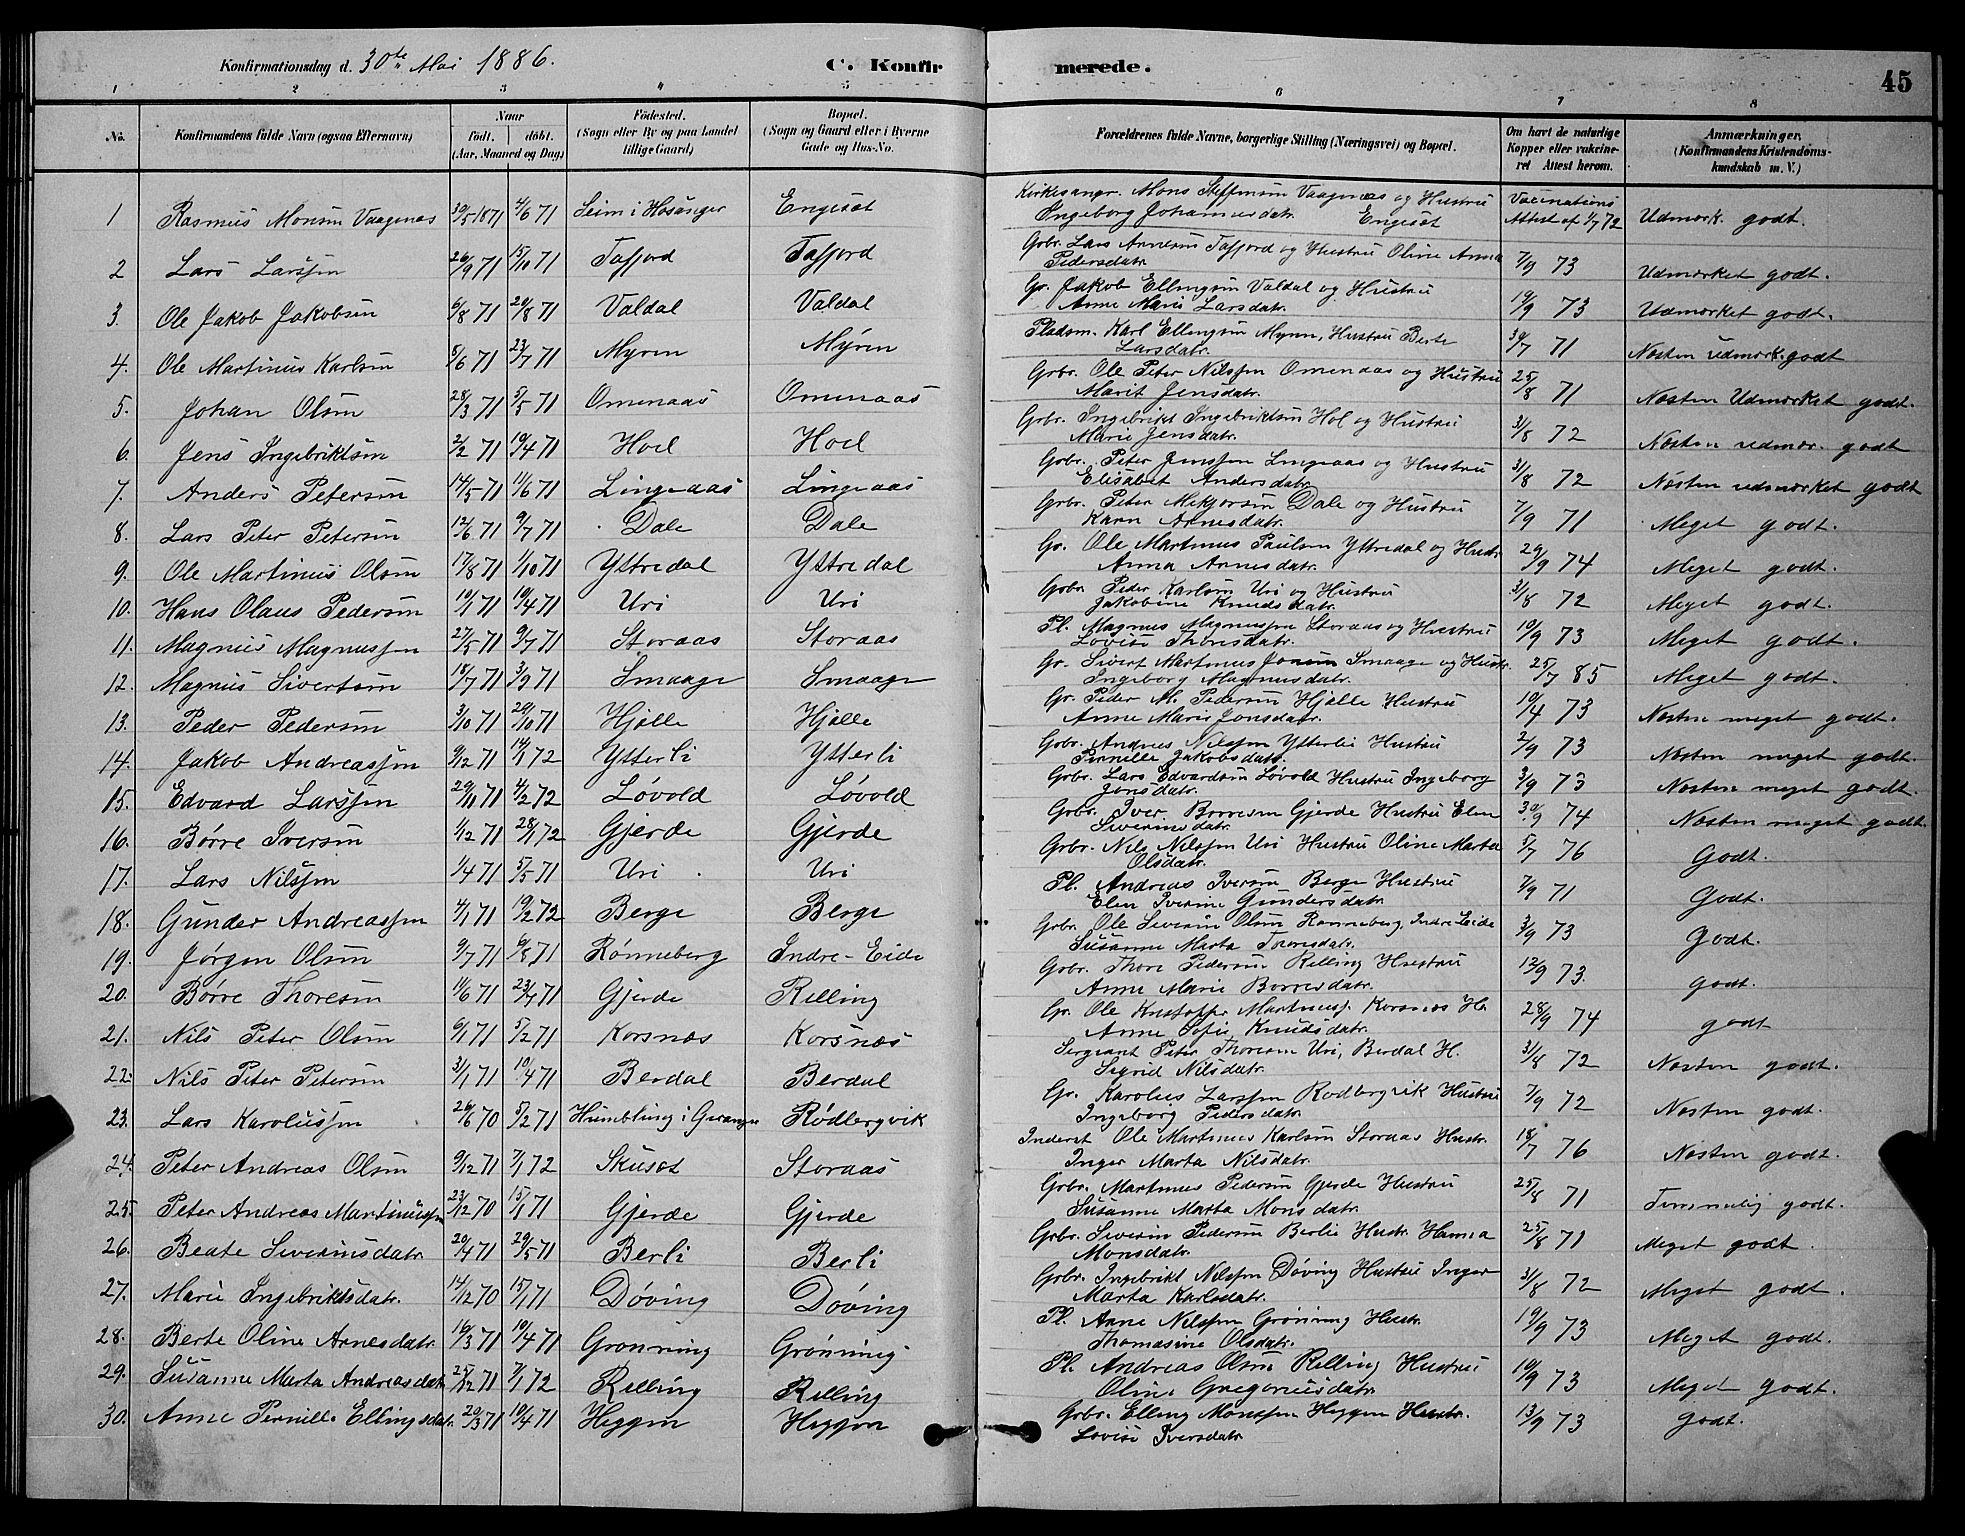 Konfirmationsdag d. 30te Mai 1886.
C. Konfirmerede.
45
1 2 3 4 5 6 7 8
No.
Konfirmandens fulde Navn (ogsaa Efternavn)
Naar
født. døbt.
(Aar, Maaned og Dag)
Fødested.
(Sogn eller By og paa Landet
tillige Gaard)
Bopæl.
(Sogn og Gaard eller i Byerne
Gade og Hus-No.
Forældrenes fulde Navne, borgerlige Stilling (Næringsvei) og Bopæl.
Om havt de naturlige
Kopper eller vakcineret
Attest herom.
Anmærkninger.
(Konfirmandens Kristendomskundskab m. V.)
1 Rasmus Monsen Vaagenæs 30/5 1871 4/6 71 Leim i Hosanger Engesæt Kirkesangr. Mons Steffensen Vaagenæs og Hustru Vacinations
Ingeborg Johannesdatr. Engesæt Attest af 1/7 72 Udmærk. godt.
2 Lars Larssen 26/9 71 15/10 71 Tafjord Tafjord Grbr. Lars Arnesen Tafjord og Hustru Oline Anna
Pedersdatr. 7/9 73 Udmærket godt.
3. Ole Jakob Jakobsen 6/8 71 20/8 71 Valdal Valdal Gr. Jakob Ellingsen Valdal og Hustru
Anne Marie Larsdatr. 19/9 73 Udmærket godt.
4. Ole Martinus Karlsen 5/6 71 23/7 71 Myren Myren Pladsm. Karl Ellingsen Myren, Hustru Berte
Larsdatr. 30/7 71 Næsten udmærk. godt
5. Johan Olsen 28/3 71 3/5 71 Omenaas Omenaas Grbr. Ole Peter Nilssen Omenaas og Hustru
Marit Jensdatr. 25/8 71 Næsten Udmærket godt.
6. Jens Ingebriktsen 2/2 71 10/4 71 Hoel Hoel Grbr. Ingebrikt Ingebriktsen Hol og Hustru
Marie Jensdatr. 31/8 72 Næsten udmær. godt
7. Anders Petersen 14/5 71 11/6 71 Lingeaas Lingeaas Grbr. Peter Jenssen Lingeaas og Hustru
Elisabet Andersdatr. 31/8 72 Næsten udmærket godt
8. Lars Peter Petersen 12/6 71 9/7 71 Dale Dale Grbr. Peter Mikjorsen Dale og Hustru
Karn Arnesdatr. 7/9 71 Meget godt.
9. Ole Martinus Olsen 17/8 71 1/10 71 Yttredal Yttredal Gr. Ole Martinus Paulsen Yttredal og Hustr.
Anna Arnesdatr. 29/9 74 Meget godt.
10. Hans Olaus Pedersen 19/1 71 10/4 71 Uri Uri Grbr. Peder Karlsen Uri og Hustru
Jakobine Knudsdatr. 31/8 72 Meget godt.
11. Magnus Magnussen 27/5 71 9/7 71 Storaas Storaas Pl. Magnus Magnussen Storaas og Hustru
Lovise Thoresdatr. 10/9 73 Meget godt.
12. Magnus Sivertsen 18/7 71 3/9 71 Smaage Smaage Gr. Sivert Martinus Smaage og Hustr.
Ingeborg Magnusdatr. 25/7 85 Meget godt.
13. Peder Pedersen 3/10 71 29/10 71 Hjelle Hjelle Gr. Peder M. Pedersen Hjelle Hustru
Anne Marie Jonsdatr. 10/4 73 Næsten meget godt.
14. Jakob Andreassen 9/12 71 14/1 72 Ytterli Ytterli Grbr. Andreas Nilssen Ytterli Hustru
Pernille Jakobsdatr. 2/9 73 Næsten meget godt.
15. Edvard Larssen 29/11 71 4/2 72 Løvold Løvold Grbr. Lars Edvardsen Løvold Hustru Ingeborg
Jonsdatr. 3/9 73 Næsten meget godt.
16. Børre Iversen 1/12 71 28/1 72 Gjerde Gjerde Grbr. Iver Børresen Gjerde Hustru Elen
Severinsdatr. 30/9 74 Næsten meget godt.
17. Lars Nilssen 1/4 71 5/5 71 Uri Uri Grbr. Nils Nilssen Uri Hustru Oline Marta
Olsdatr. 5/7 76 Godt.
18. Gunder Andreassen 4/1 71 19/2 72 Berge Berge Pl. Andreas Iversen Berge Hustru
Elen Iverine Gundersdatr. 7/9 71 Godt.
19. Jørgen Olsen 9/7 71 6/8 71 Rønneberg Indre-Eide Grbr. Ole Severin Olsen Rønneberg, Indre Eide
Susanne Marta Thoresdatr. 3/9 73 Godt.
20. Børre Thoresen 11/6 71 23/7 71 Gjerde Relling Grbr. Thore Pedersen Relling Hustru
Anne Marie Børresdatr. 12/9 73. godt.
21. Nils Peter Olsen 6/1 71 5/2 71 Korsnæs Korsnæs Gr. Ole Kristoffer Martinusj. Korsnæs H.
Anne Sofie Knudsdatr. 28/9 74 godt
22. Nils Peter Petersen 3/1 71 10/4 71 Berdal Berdal Sergeant Peter Thoresen Uri, Berdal H.
Sigrid Nilsdatr. 31/8 72 Næsten godt.
23. Lars Karolussen 26/6 70 5/2 71 Humblung i Geranger Rødbergvik Gr. Karolus Larssen Rødbergvik Hustru
Ingeborg Pedersdatr. 7/9 72 Næsten godt.
24. Peter Andreas Olsen 9/12 71 7/1 72 Skuset Storaas Inderst Ole Martinus Karlsen Storaas Hustr.
Inger Marta Nilsdatr. 18/7 76 Næsten godt.
25. Peter Andreas Martinussen 23/12 70 15/1 71 Gjerde Gjerde Grbr. Martinus Pedersen Gjerde Hustru
Susanne Marta Monsdatr. 25/8 71 Temmelig godt.
26. Beate Severinsdatr. 20/4 71 29/5 71 Berli Berli Grbr. Severin Pedersen Berlie Hustr. Hanna
Monsdatr. 25/8 71 Meget godt.
27. Marie Ingebriktsdatr. 14/12 70 15/1 71 Døving Døving Grbr. Ingebrikt Nilssen Døving Hustru Inger
Marta Karlsdatr. 31/8 72 Meget godt.
28. Berte Oline Arnesdatr. 16/3 71 10/4 71 Grønning Grønning Pl. Arne Nilssen Grønning Hustr.
Thomasine Olsdatr. 19/9 73 Meget godt.
29. Susanne Marta Andreasdatr. 25/12 71 7/1 72 Relling Relling Pl. Andreas Olsen Relling Hustru
Oline Gregoriusdatr. 10/9 73 Meget godt.
30. Anne Pernille Ellingsdatr. 20/3 71 10/4 71 Heggen Heggen Grbr. Elling Monssen Heggen Hustr.
Lovise Iversdatr. 13/9 73 godt.